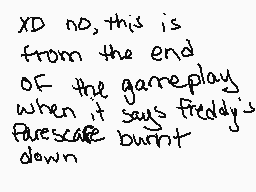 XD no, this is
from the end
of the gameplay
when it says freddy's
farescare burnt
down